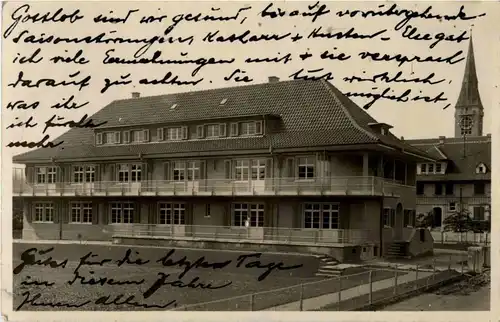 Gottlob sind wir gesund, bis auf vorübergehende
Saisonstörungen, Katarr + Husten. Elee gab
ich viele Ermahnungen mit + sie versprach
darauf zu achten. Sie tut wirklich,
was ihr möglich ist,
ich
mehr.
Gutes für die letzten Tage
in diesem Jahre
Ihnen Allen